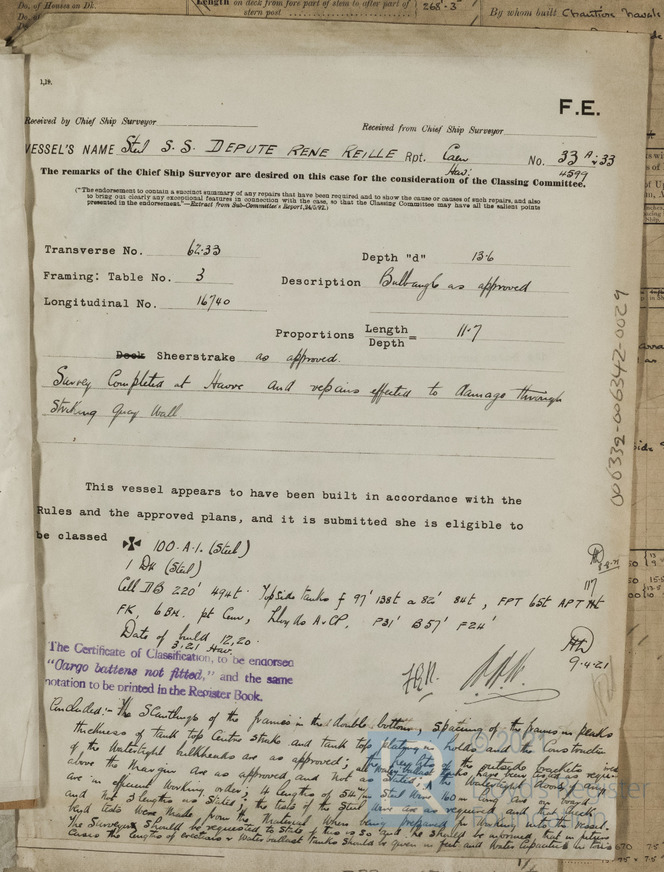 Length on deck from fore part of stem to after part of
stern post 268·3
By whom built Chantiers Navals
Do. of Houses on Dk.
Do. of
1,19.
F.E.
Received by Chief Ship Surveyor
Received from Chief Ship Surveyor
VESSEL'S NAME Steel S.S. DEPUTE RENE REILLE Rpt. Caen No. 33A & 33
Hav. 4599
The remarks of the Chief Ship Surveyor are desired on this case for the consideration of the Classing Committee.
("The endorsement to contain a succinct summary of any repairs that have been required and to show the cause or causes of such repairs, and also
to bring out clearly any exceptional features in connection with the case, so that the Classing Committee may have all the salient points
presented in the endorsement."—Extract from Sub-Committee's Report, 24/2/92.)
Transverse No. 62·33
Depth "d" 13·6
Framing: Table No. 3
Description Bulbangle as approved
Longitudinal No. 16740
Proportions Length
Depth = 11·7
Deck Sheerstrake as approved.
Survey Completed at Havre and repairs effected to damage through
striking quay wall
This vessel appears to have been built in accordance with the
Rules and the approved plans, and it is submitted she is eligible to
be classed ✠ 100·A·1. (Steel)
1 Dk (Steel)
Cell DB 220' 494t. Topside tanks f 97' 138t a 82' 84t, FPT 65t APT
FK, 6 BH. pt Cem, Lloyds A & CP. P31' B57' F24'
Date of build 12,20.
3·21 Hav.
9·4·21
The Certificate of Classification, to be endorsed
"Cargo battens not fitted," and the same
notation to be printed in the Register Book.
Concluded:- The Scantlings of the frames in the double bottom, spacing of the frames in peaks
thickness of tank top Centre Strake and tank top plating in holds and the Construction
of the Watertight bulkheads are as approved; the
above the Margin are as approved, and not as stated; the Watertight doors
are in efficient working order; 4 lengths of Steel Wire 160 m long are on board
and not 3 lengths as Stated; the tests of the Steel were as required and that
tests were made from the Material when being prepared for working into the vessel.
The Surveyors should be requested to State if this is so and he should be informed that in future
Cases the lengths of erections & Water ballast Tanks should be given in feet and Water Capacities in tons
006339-006342-0029
© 2021
Lloyd's Register